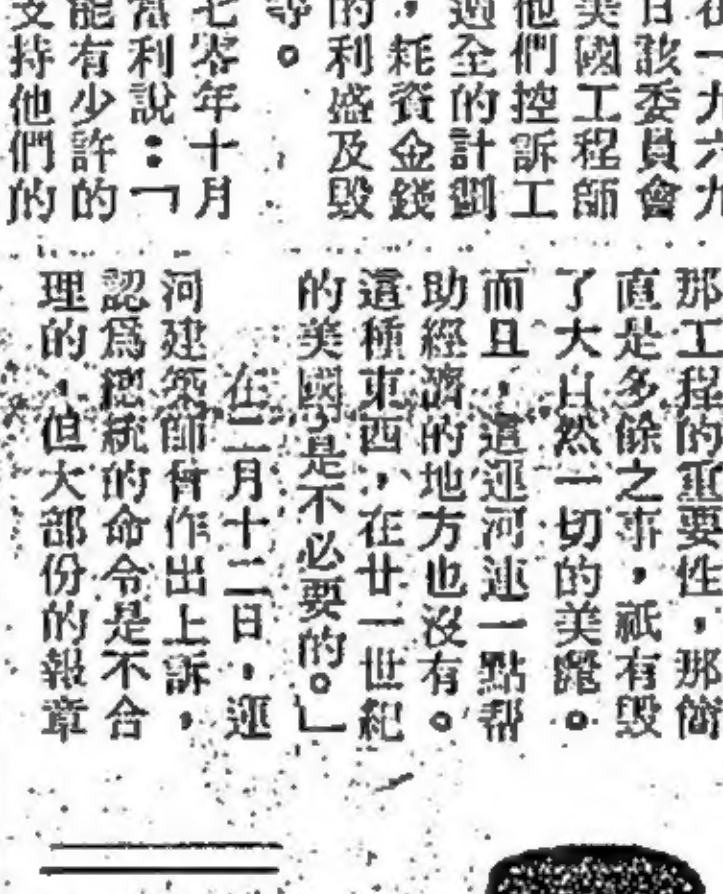 在一九六九
日該委員會
美國工程師
他們控訴工
過全的計劃
，耗資金錢
的利盛及毀
等。
七零年十月
當利說：「
能有少許的
支持他們的
那工程的重要性，那簡
直是多餘之事，祇有毀
了大自然一切的美麗。
而且，這運河連一點帮
助經濟的地方也沒有。
這種東西，在廿一世紀
的美國是不必要的。」
在二月十二日，運
河建築師會作出上訴，
認爲總統的命令是不合
理的，但大部份的報章